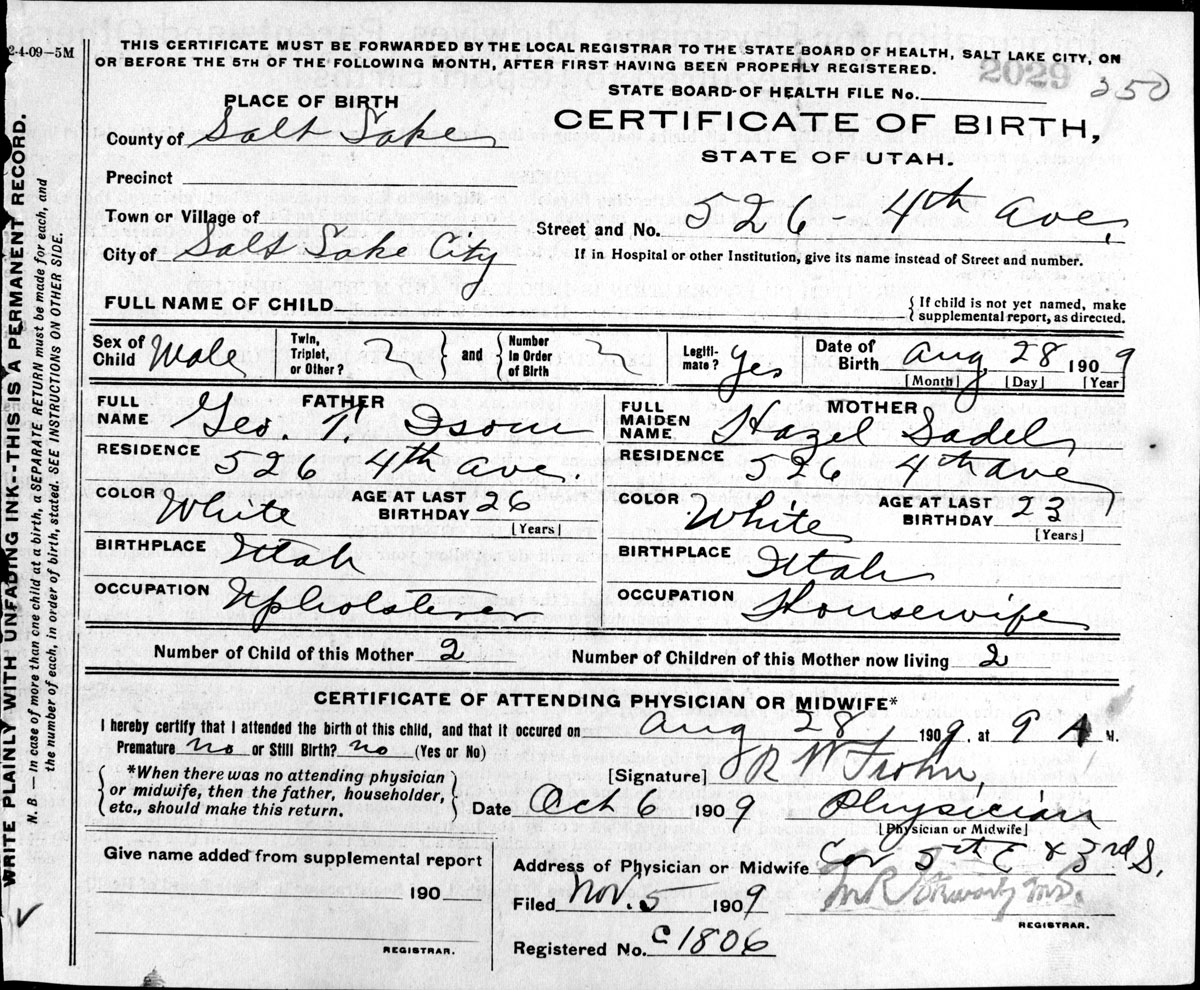 2-4-09—5M
THIS CERTIFICATE MUST BE FORWARDED BY THE LOCAL REGISTRAR TO THE STATE BOARD OF HEALTH, SALT LAKE CITY, ON
OR BEFORE THE 5TH OF THE FOLLOWING MONTH, AFTER FIRST HAVING BEEN PROPERLY REGISTERED.
2029 350
STATE BOARD OF HEALTH FILE No.
PLACE OF BIRTH
CERTIFICATE OF BIRTH,
STATE OF UTAH.
County of Salt Lake
Precinct
Town or Village of
Street and No. 526 - 4th Ave.
City of Salt Lake City
If in Hospital or other Institution, give its name instead of Street and number.
FULL NAME OF CHILD
{ If child is not yet named, make
supplemental report, as directed.
Sex of Child Male
Twin, Triplet, or Other?
and
Number In Order of Birth
Legiti-mate? Yes
Date of Birth Aug. 28 1909
[Month] [Day] [Year]
FATHER
FULL NAME Geo. T. Isom
RESIDENCE 526 4th Ave.
COLOR White AGE AT LAST BIRTHDAY 26
[Years]
BIRTHPLACE Utah
OCCUPATION Upholsterer
MOTHER
FULL MAIDEN NAME Hazel
RESIDENCE 526 4th Ave
COLOR White AGE AT LAST BIRTHDAY 23
[Years]
BIRTHPLACE Utah
OCCUPATION Housewife
Number of Child of this Mother 2
Number of Children of this Mother now living 2
CERTIFICATE OF ATTENDING PHYSICIAN OR MIDWIFE*
I hereby certify that I attended the birth of this child, and that it occured on Aug 28 1909, at 9 A M.
Premature no or Still Birth? no (Yes or No)
{ *When there was no attending physician
or midwife, then the father, householder,
etc., should make this return. }
[Signature] R W
Date Oct 6 1909 Physician
[Physician or Midwife]
Give name added from supplemental report
190
REGISTRAR.
Address of Physician or Midwife Cor 5th E & 3rd S.
Filed Nov. 5 1909
REGISTRAR.
Registered No. C1806
WRITE PLAINLY WITH UNFADING INK--THIS IS A PERMANENT RECORD.
N. B. — In case of more than one child at a birth, a SEPARATE RETURN must be made for each, and
the number of each, in order of birth, stated. SEE INSTRUCTIONS ON OTHER SIDE.